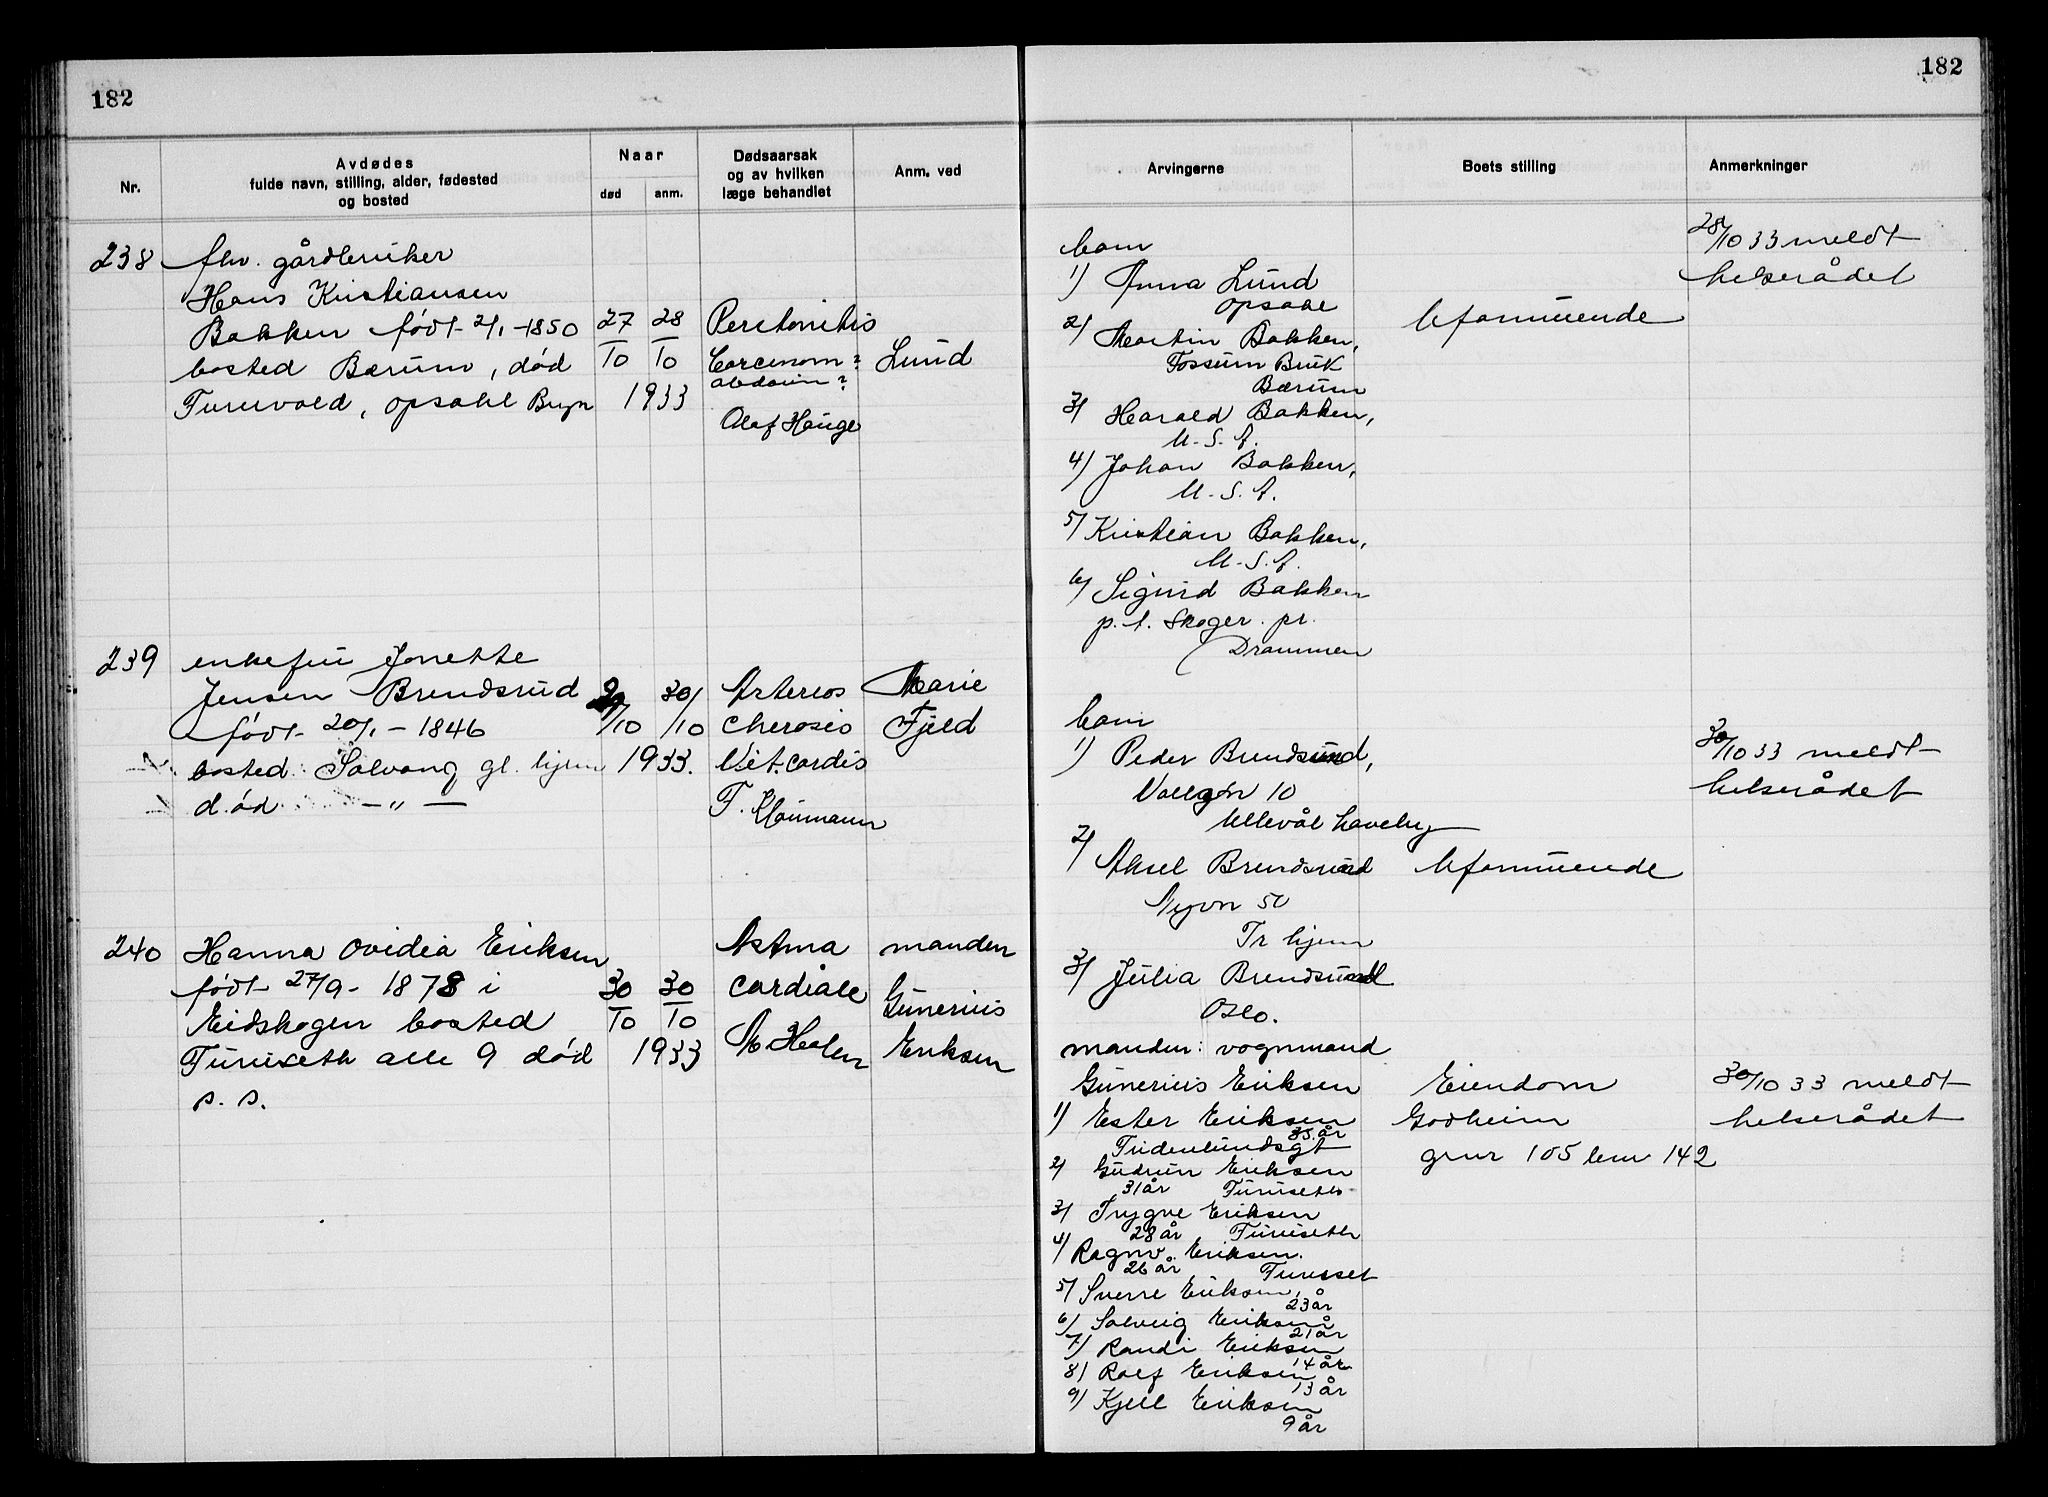 182
182
Nr.
Avdødes
fulde navn, stilling, alder, fødested
og bosted
Naar
død
anm.
Dødsaarsak
og av hvilken
læge behandlet
Anm. ved
Arvingerne
Boets stilling
Anmerkninger
238
fhv. gårdbruker
Hans Kristiansen
Bakken født 2/1-1850
bosted Bærum, død
Furuvold, Opsahl Bryn
27/10 28/10
1933
Peritonitis
Carcenom?
abdomin?
Olaf Hauge
Lund
barn
1) Anna Lund
Opsahl
2) Martin Bakken,
Fossum Bruk
Bærum
3) Harald Bakken,
U.S.A.
4) Johan Bakken,
U.S.A.
5) Kristian Bakken,
U.S.A.
6) Sigurd Bakken
p.t. Skoger pr.
Drammen
Uformuende
28/10 33 meldt
helserådet
239
enkefru Jonette
Jensen Brendsrud
født 20/1-1846
bosted: Solvang gl. hjem
død -"-
29/10 30/10
1933.
Arterios
cherosis
Vit. cordis
F. Klaumann
Marie
Fjeld
barn
1) Peder Brendsrud,
10
Ullevål haveby
2) Aksel Brendsrud
50
Tr hjem
3) Julia Brendsrud
Oslo.
Uformuende
30/10 33 meldt
helserådet
240
Hanna Ovidia Eriksen
født 27/9-1878 i
Eidskogen bosted
Furuseth alle 9 død
s.s.
30/10 30/10
1933
Astma
cardiale
A. Holen
manden
Gunerius
Eriksen
manden: vognmand
Gunerius Eriksen
1) Ester Eriksen
35 år
Fridenlundsgt
2) Gudrun Eriksen
31 år Furuseth
3) Trygve Eriksen
28 år Furuseth
4) Ragnv. Eriksen.
26 år Furuset
5) Sverre Eriksen,
23 år
6) Solveig Eriksen
21 år
7) Randi Eriksen
14 år
8) Rolf Eriksen
13 år
9) Kjell Eriksen
9 år
Eiendom
Godheim
gnr 105 bnr 142
30/10 33 meldt
helserådet